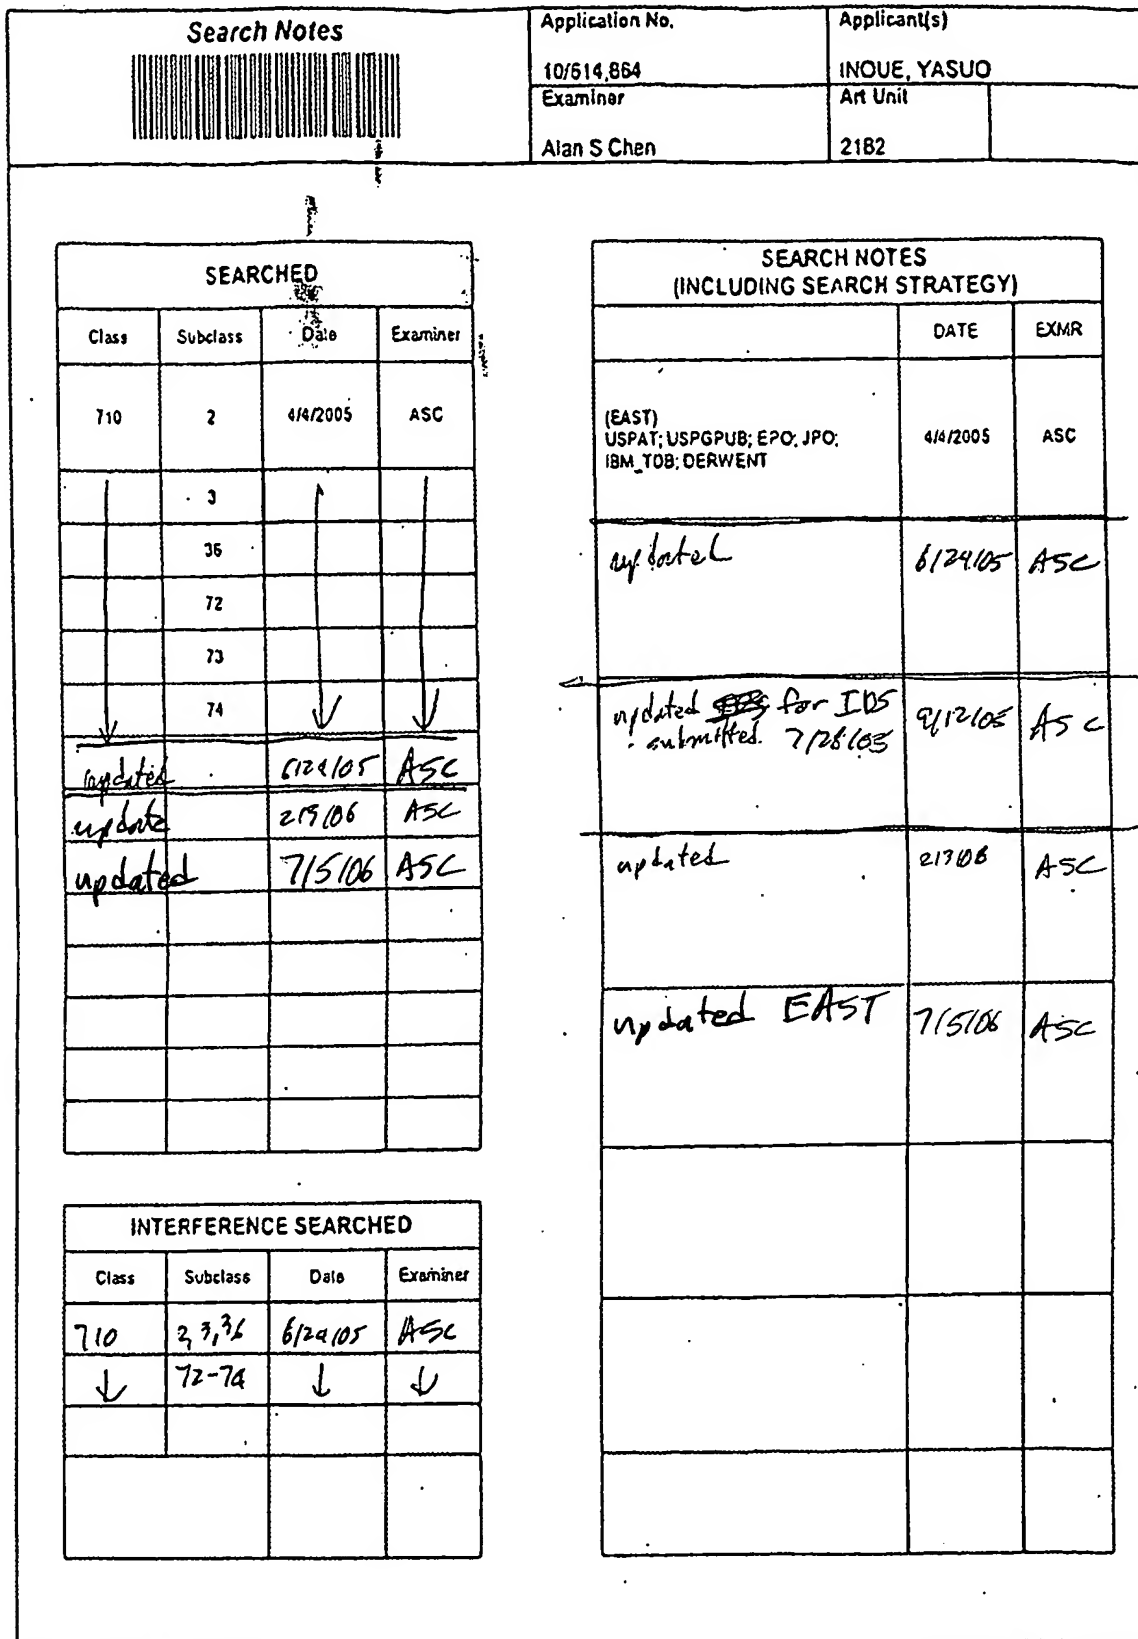 Search Notes
Application No.
Applicant(s)
10/614,864
INOUE, YASUO
Examiner
Art Unit
Alan S Chen
2182
SEARCHED
Class Subclass Date Examiner
710 2 4/4/2005 ASC
3
36
72
73
74
updated 6/29/05 ASC
update ASC
updated 7/5/06 ASC
INTERFERENCE SEARCHED
Class Subclass Date Examiner
710 2, 3, 36 6/29/05 ASC
72-74
SEARCH NOTES
(INCLUDING SEARCH STRATEGY)
DATE EXMR
(EAST)
USPAT; USPGPUB; EPO; JPO;
IBM_TDB; DERWENT
4/4/2005 ASC
updated 6/29/05 ASC
updated for IDS
submitted 7/28/05
9/12/05 ASC
updated ASC
updated EAST 7/5/06 ASC